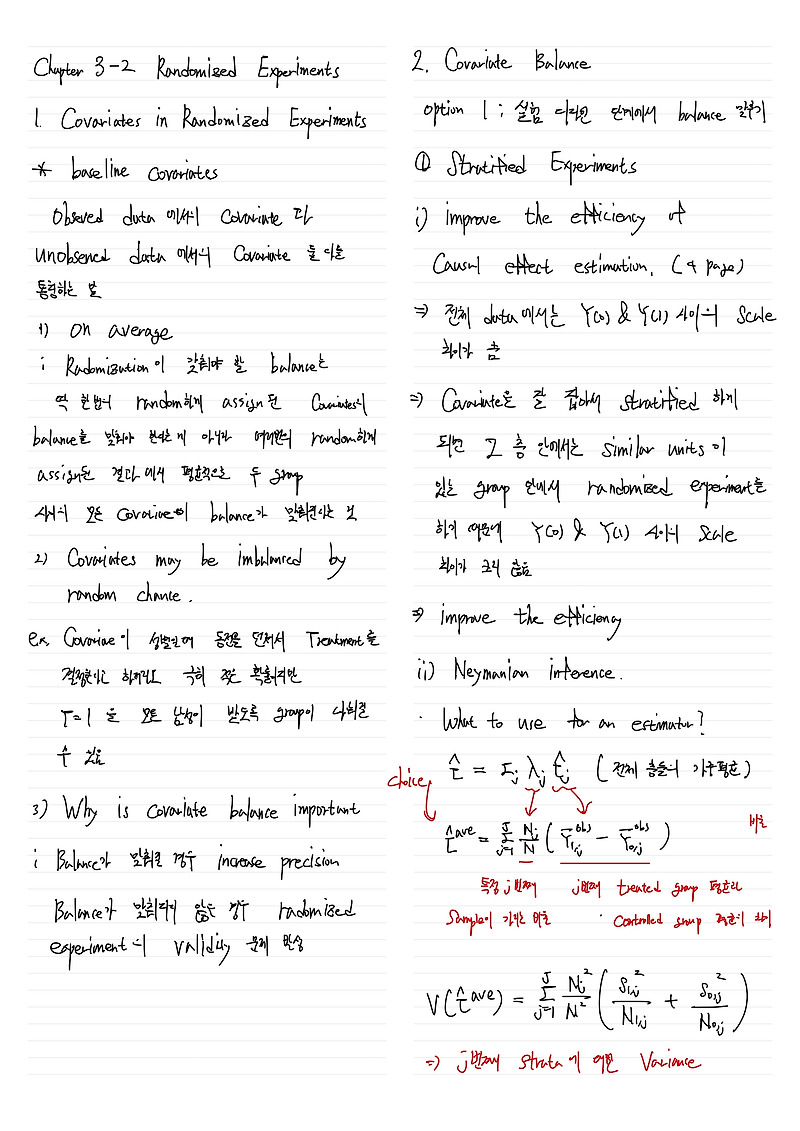 Chapter 3-2 Randomized Experiments
1. Covariates in Randomized Experiments
* baseline covariates
Obseved data 에서의 Covariate 과
unobserved data 에서의 Covariate 들 이을
통칭하는 말
1) on average
i Radomization이 갖춰야 할 balance는
딱 한번의 random하게 assign된 Covariates의
balance를 맞춰야 한다는게 아니라 여러번의 random하게
assign된 결과에서 평균적으로 두 group
사이의 모든 covariate의 balance가 맞춰진다는 것
2) Covariates may be imbalanced by
random chance.
ex. Covariate이 성별일때 동전을 던져서 Treatment를
결정한다고 하더라도 극히 적은 확률이지만
T=1 을 모두 남성이 받도록 group이 나눠질
수 있음
3) Why is covariate balance important
i Balance가 맞춰질 경우 increase precision
Balance가 맞춰지지 않은 경우 radomized
experiment의 validity 문제 발생
2. Covariate Balance
option 1 ; 실험 디자인 단계에서 balance 맞추기
① Stratified Experiments
i) improve the efficiency of
Causal effect estimation. (4 page)
⇒ 전체 data에서는 Y(0) & Y(1) 사이의 Scale
차이가 큼
⇒ Covariate을 잘 잡아서 stratified 하게
되면 그 층 안에서는 similar units이
있는 group 안에서 randomized experiment를
하기 때문에 Y(0) & Y(1) 사이의 Scale
차이가 크지 않음
⇒ improve the efficiency
ii) Neymanian inference.
· What to use for an estimator?
τ̂ = Σj λj τ̂j ( 전체 층들의 가중평균 )
choice
τ̂ᵃᵛᵉ = Σ_{j=1}^{J} Nj/N ( Ȳ₁,ⱼᵒᵇˢ − Ȳ₀,ⱼᵒᵇˢ )
비교
특정 j번째 j번째 treated group 평균과
Sample이 가지는 비율 · Controlled group 평균의 차이
V(τ̂ᵃᵛᵉ) = Σ_{j=1}^{J} Nj²/N² ( S₁,ⱼ²/N₁,ⱼ + S₀,ⱼ²/N₀,ⱼ )
⇒ j번째 strata에 대한 Variance